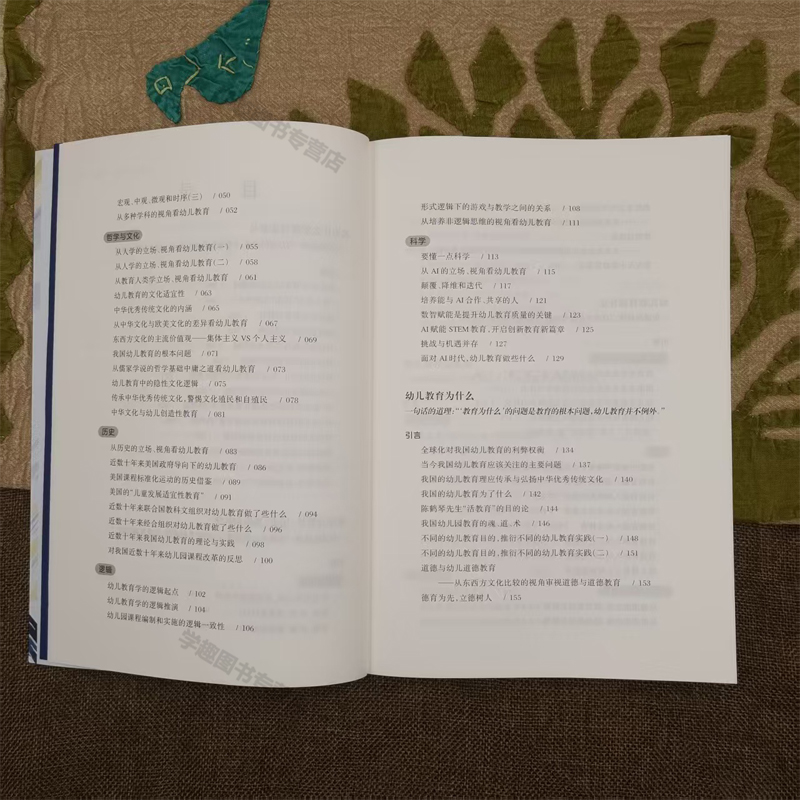 宏观、中观、微观和时序(三) / 050
从多种学科的视角看幼儿教育 / 052
哲学与文化
从人学的立场、视角看幼儿教育(一) / 055
从人学的立场、视角看幼儿教育(二) / 058
从教育人类学立场、视角看幼儿教育 / 061
幼儿教育的文化适宜性 / 063
中华优秀传统文化的内涵 / 065
从中华文化与欧美文化的差异看幼儿教育 / 067
东西方文化的主流价值观——集体主义 VS 个人主义 / 069
我国幼儿教育的根本问题 / 071
从儒家学说的哲学基础中庸之道看幼儿教育 / 073
幼儿教育中的隐性文化逻辑 / 075
传承中华优秀传统文化,警惕文化殖民和自殖民 / 078
中华文化与幼儿创造性教育 / 081
历史
从历史的立场、视角看幼儿教育 / 083
近数十年来美国政府导向下的幼儿教育 / 086
美国课程标准化运动的历史借鉴 / 089
美国的“儿童发展适宜性教育” / 091
近数十年来联合国教科文组织对幼儿教育做了些什么 / 094
近数十年来经合组织对幼儿教育做了些什么 / 096
近数十年来我国幼儿教育的理论与实践 / 098
对我国近数十年来幼儿园课程改革的反思 / 100
逻辑
幼儿教育学的逻辑起点 / 102
幼儿教育学的逻辑推演 / 104
幼儿园课程编制和实施的逻辑一致性 / 106
形式逻辑下的游戏与教学之间的关系 / 108
从培养非逻辑思维的视角看幼儿教育 / 111
科学
要懂一点科学 / 113
从 AI 的立场、视角看幼儿教育 / 115
颠覆、降维和迭代 / 117
培养能与 AI 合作、共享的人 / 121
数智赋能是提升幼儿教育质量的关键 / 123
AI 赋能 STEM 教育,开启创新教育新篇章 / 125
挑战与机遇并存 / 127
面对 AI 时代,幼儿教育做些什么 / 129
幼儿教育为什么
一句话的道理:“‘教育为什么’的问题是教育的根本问题,幼儿教育并不例外。”
引言
全球化对我国幼儿教育的利弊权衡 / 134
当今我国幼儿教育应该关注的主要问题 / 137
我国的幼儿教育理应传承与弘扬中华优秀传统文化 / 140
我国的幼儿教育为了什么 / 142
陈鹤琴先生“活教育”的目的论 / 144
我国幼儿园教育的魂、道、术 / 146
不同的幼儿教育目的,推衍不同的幼儿教育实践(一) / 148
不同的幼儿教育目的,推衍不同的幼儿教育实践(二) / 151
道德与幼儿道德教育
——从东西方文化比较的视角审视道德与道德教育 / 153
德育为先,立德树人 / 155
图书专营店
学趣图书专营